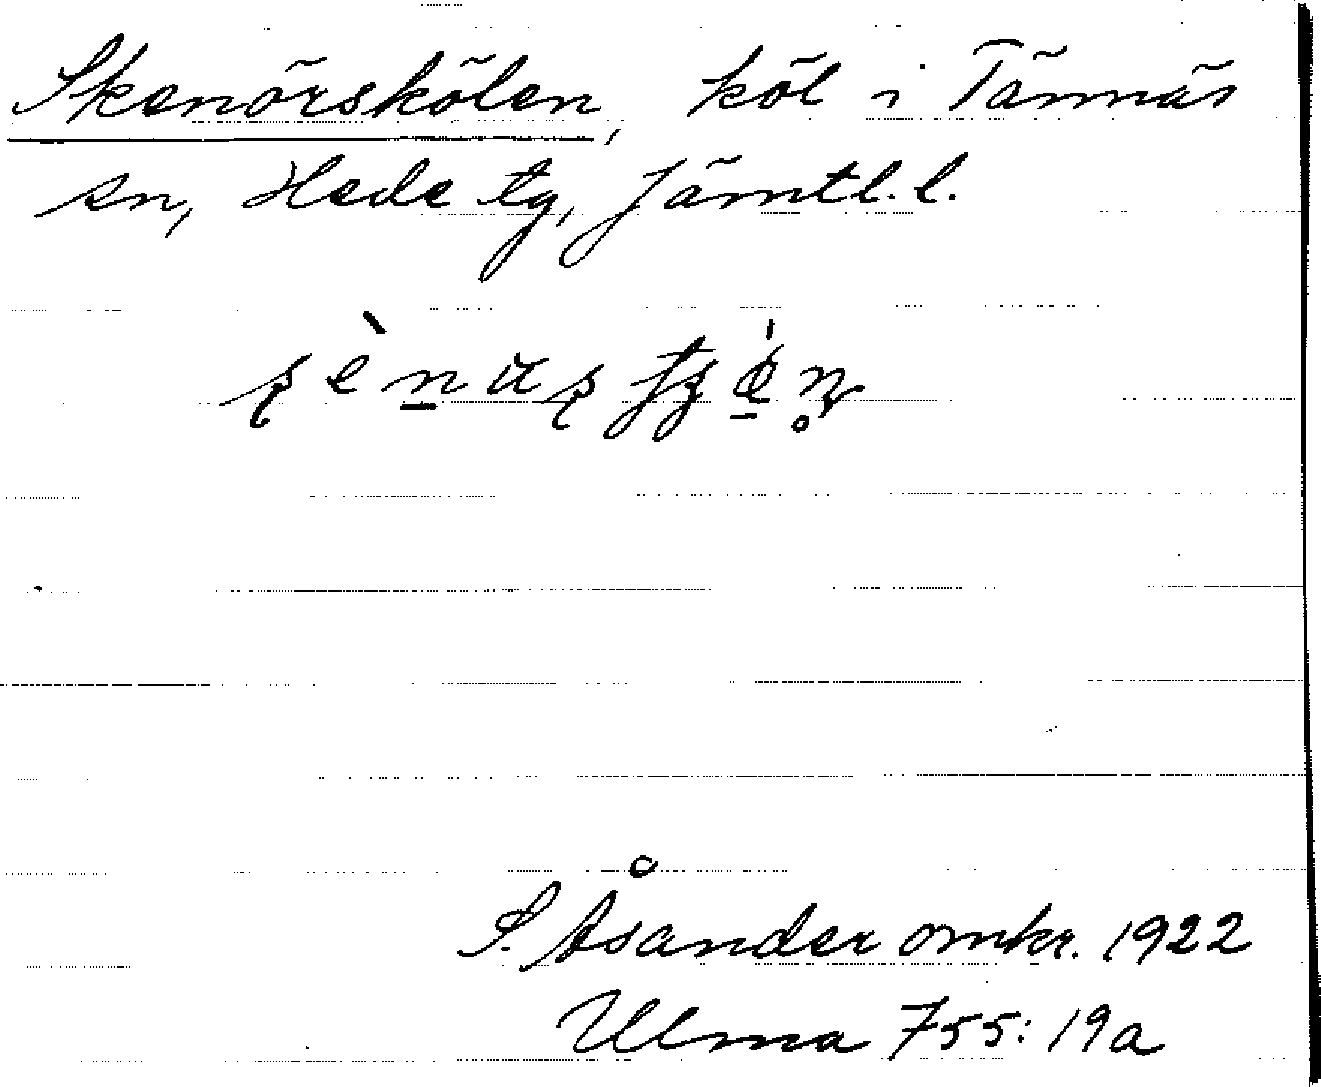 Skenörskölen, köl i Tännäs
sn, Hede tg, Jämtl. l.
S. Åsander omkr. 1922
Ulma 755: 19a